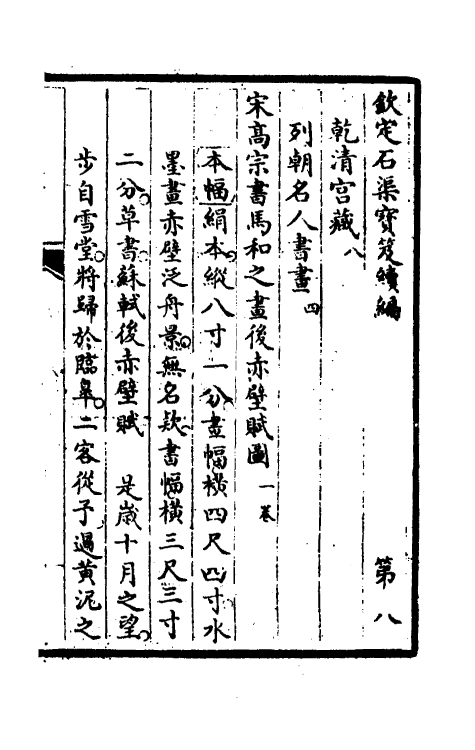 欽定石渠寶笈續編 第八
乾清宮藏八
列朝名人書畫四
宋高宗書馬和之畫後赤壁賦圖一卷
本幅絹本縱八寸一分畫幅橫四尺四寸水
墨畫赤壁泛舟景無名款書幅橫三尺三寸
二分草書蘇軾後赤壁賦 是歲十月之望
步自雪堂將歸於臨皋二客從予過黃泥之